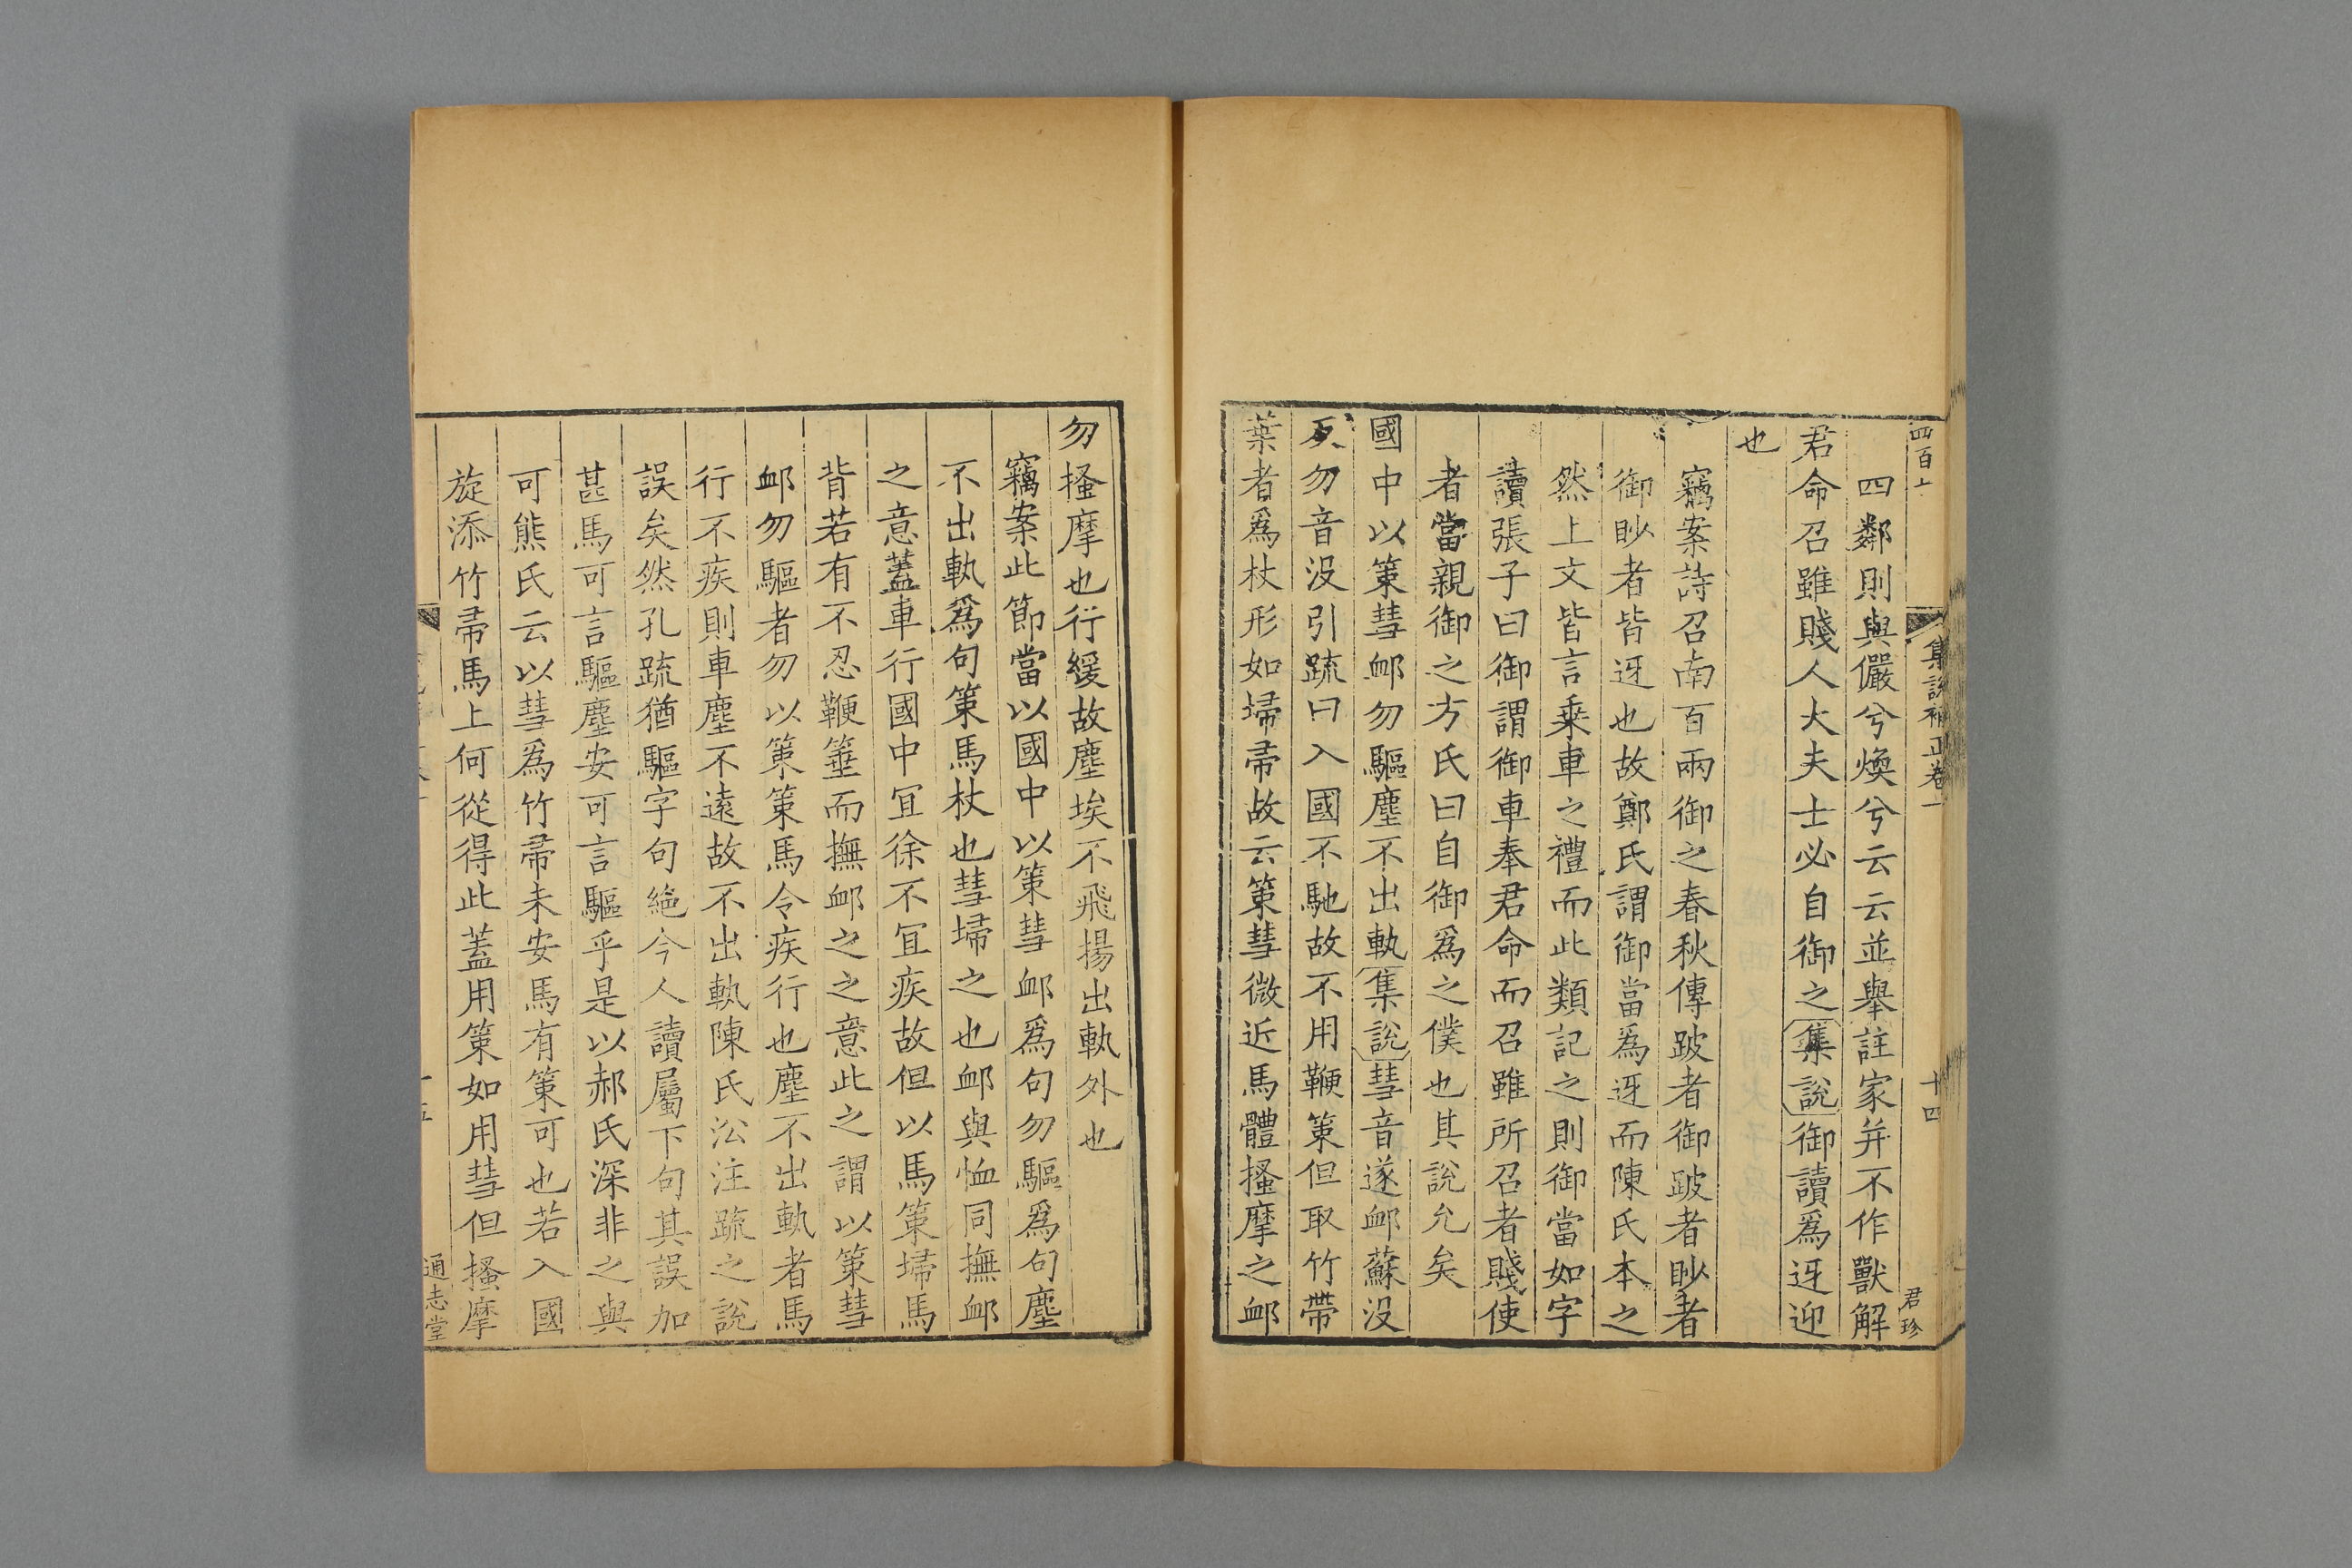 四百七
集說補正卷一
十四
君珍
四鄰則與儼兮煥兮云云並舉註家并不作獸解
君命召雖賤人大夫士必自御之集說御讀爲迓迎
也
竊案詩召南百兩御之春秋傳跛者御跛者眇者
御眇者皆迓也故鄭氏謂御當爲迓而陳氏本之
然上文皆言乗車之禮而此類記之則御當如字
讀張子曰御謂御車奉君命而召雖所召者賤使
者當親御之方氏曰自御爲之僕也其說允矣
國中以策彗卹勿驅塵不出軌集說彗音遂卹蘇没
反勿音没引疏曰入國不馳故不用鞭策但取竹帶
葉者爲杖形如埽帚故云策彗微近馬體搔摩之卹
勿搔摩也行緩故塵埃不飛揚出軌外也
竊案此節當以國中以策彗卹爲句勿驅爲句塵
不出軌爲句策馬杖也彗埽之也卹與恤同撫卹
之意蓋車行國中宜徐不宜疾故但以馬策埽馬
背若有不忍鞭箠而撫卹之之意此之謂以策彗
卹勿驅者勿以策策馬令疾行也塵不出軌者馬
行不疾則車塵不遠故不出軌陳氏㳂注疏之說
誤矣然孔疏猶驅字句絶今人讀屬下句其誤加
甚馬可言驅塵安可言驅乎是以郝氏深非之與
可熊氏云以彗爲竹帚未安馬有策可也若入國
旋添竹帚馬上何從得此蓋用策如用彗但搔摩
通志堂